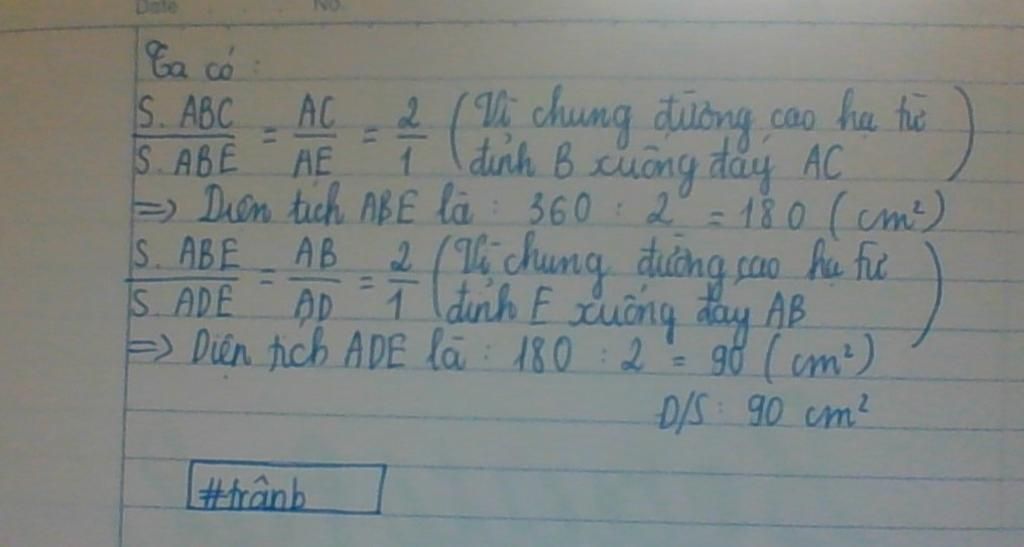 Date No.
Ta có :
S. ABC / S. ABE = AC / AE = 2 / 1 ( Vì chung đường cao hạ từ
đỉnh B xuống đáy AC )
=> Diện tích ABE là : 360 : 2 = 180 ( cm² )
S. ABE / S. ADE = AB / AD = 2 / 1 ( Vì chung đường cao hạ từ
đỉnh E xuống đáy AB )
=> Diện tích ADE là : 180 : 2 = 90 ( cm² )
Đ/S : 90 cm²
#trânb